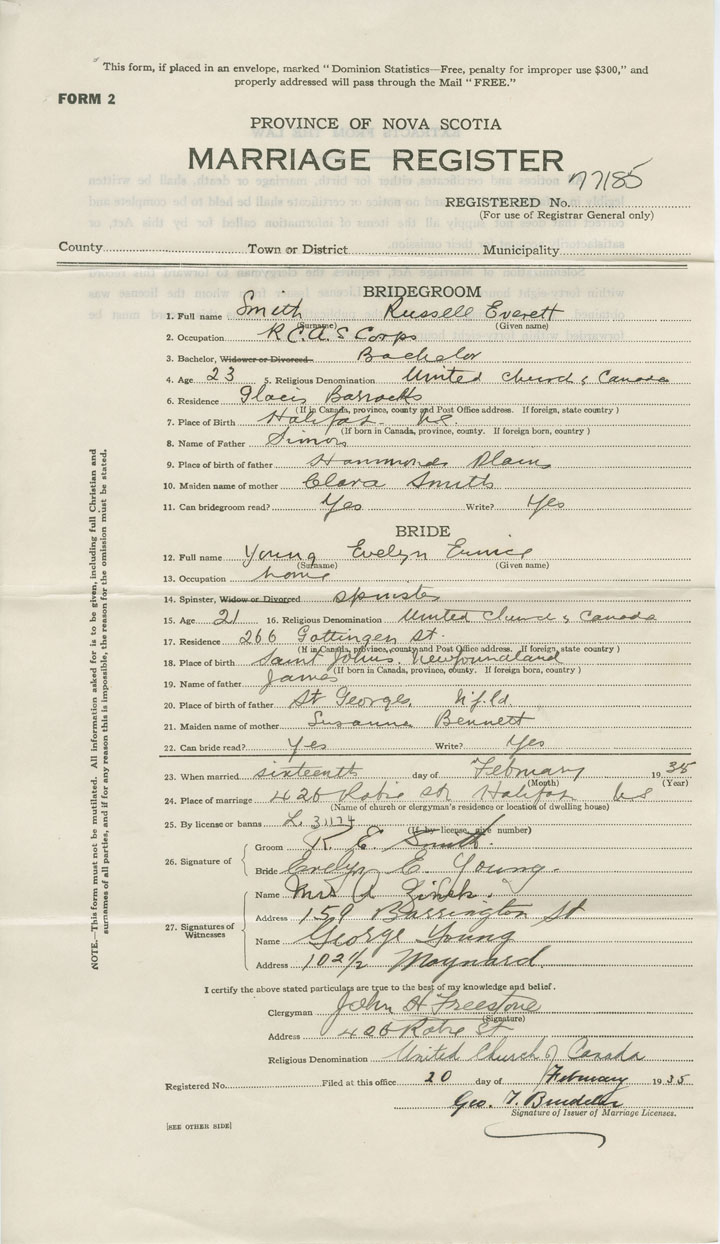 This form, if placed in an envelope, marked "Dominion Statistics—Free, penalty for improper use $300," and
properly addressed will pass through the Mail "FREE."
FORM 2
PROVINCE OF NOVA SCOTIA
MARRIAGE REGISTER
77185
REGISTERED No.
(For use of Registrar General only)
County Town or District Municipality
BRIDEGROOM
1. Full name Smith Russell Everett
(Surname) (Given name)
2. Occupation R.C.A.S Corps
3. Bachelor, Widower or Divorced Bachelor
4. Age 23 5. Religious Denomination United Church of Canada
6. Residence Glacis Barracks
(If in Canada, province, county and Post Office address. If foreign, state country)
7. Place of Birth Halifax N.S.
(If born in Canada, province, county. If foreign born, country)
8. Name of Father Simon
9. Place of birth of father Hammonds Plains
10. Maiden name of mother Clara Smith
11. Can bridegroom read? Yes Write? Yes
BRIDE
12. Full name Young Evelyn Eunice
(Surname) (Given name)
13. Occupation home
14. Spinster, Widow or Divorced spinster
15. Age 21 16. Religious Denomination United Church of Canada
17. Residence 266 Gottingen St.
(If in Canada, province, county and Post Office address. If foreign, state country)
18. Place of birth Saint Johns, Newfoundland
(If born in Canada, province, county. If foreign born, country)
19. Name of father James
20. Place of birth of father St Georges, N.f.ld.
21. Maiden name of mother Susanna Bennett
22. Can bride read? Yes Write? Yes
23. When married sixteenth day of February 1935
(Month) (Year)
24. Place of marriage 426 Robie St Halifax N S
(Name of church or clergyman's residence or location of dwelling house)
25. By license or banns L.
(If by license, give number)
26. Signature of
Groom R. E. Smith.
Bride Evelyn E. Young.
27. Signatures of Witnesses
Name Mrs A Zinck.
Address 159 Barrington St
Name George Young
Address 102½ Maynard
I certify the above stated particulars are true to the best of my knowledge and belief.
Clergyman John H Freestone
(Signature)
Address 426 Robie St
Religious Denomination United Church of Canada
Registered No. Filed at this office 20 day of February 1935
Geo. T.
Signature of Issuer of Marriage Licenses.
[SEE OTHER SIDE]
NOTE.—This form must not be mutilated. All information asked for is to be given, including full Christian and
surnames of all parties, and if for any reason this is impossible, the reason for the omission must be stated.